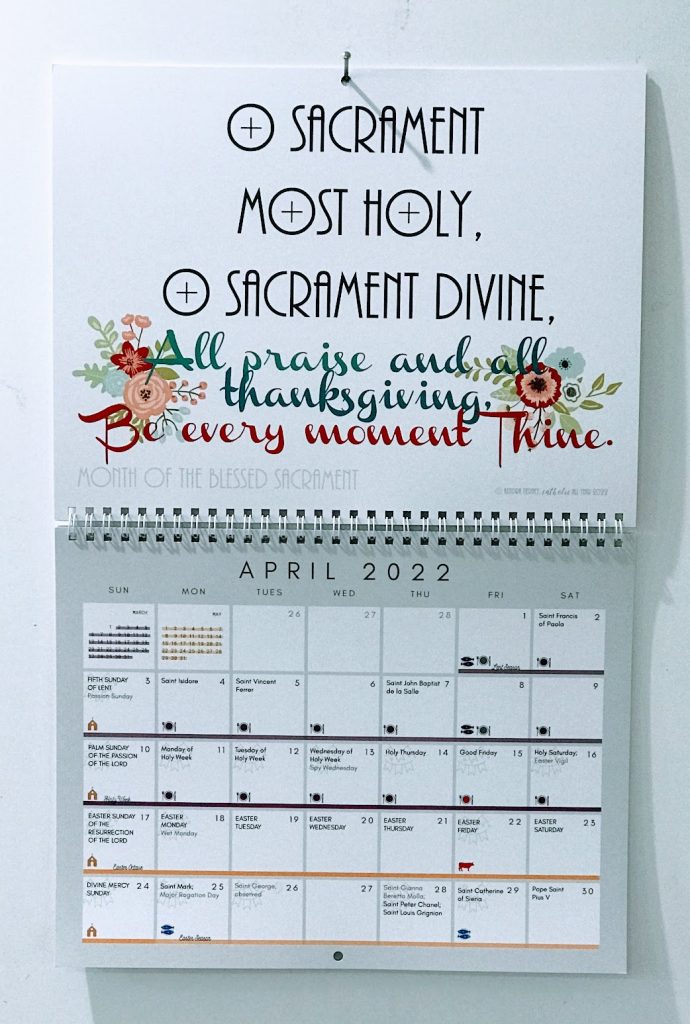 O SACRAMENT
MOST HOLY,
O SACRAMENT DIVINE,
All praise and all
thanksgiving,
Be every moment Thine.
MONTH OF THE BLESSED SACRAMENT
© KENDRA TIERNEY, catholic ALL YEAR 2022
APRIL 2022
SUN MON TUES WED THU FRI SAT
MARCH MAY 26 27 28 1 Saint Francis 2
of Paola
Lent Season
FIFTH SUNDAY 3 Saint Isidore 4 Saint Vincent 5 6 Saint John Baptist 7 8 9
OF LENT Ferrer de la Salle
Passion Sunday
PALM SUNDAY 10 Monday of 11 Tuesday of 12 Wednesday of 13 Holy Thursday 14 Good Friday 15 Holy Saturday; 16
OF THE PASSION Holy Week Holy Week Holy Week Easter Vigil
OF THE LORD Spy Wednesday
Holy Week
EASTER SUNDAY 17 EASTER 18 EASTER 19 EASTER 20 EASTER 21 EASTER 22 EASTER 23
OF THE MONDAY TUESDAY WEDNESDAY THURSDAY FRIDAY SATURDAY
RESURRECTION Wet Monday
OF THE LORD
Easter Octave
DIVINE MERCY 24 Saint Mark; 25 Saint George, 26 27 Saint Gianna 28 Saint Catherine 29 Pope Saint 30
SUNDAY Major Rogation Day observed Beretta Molla; of Siena Pius V
Saint Peter Chanel;
Saint Louis Grignion
Easter Season